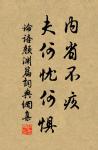 内省不疚
夫何忧何惧
论语颜渊篇词典网集